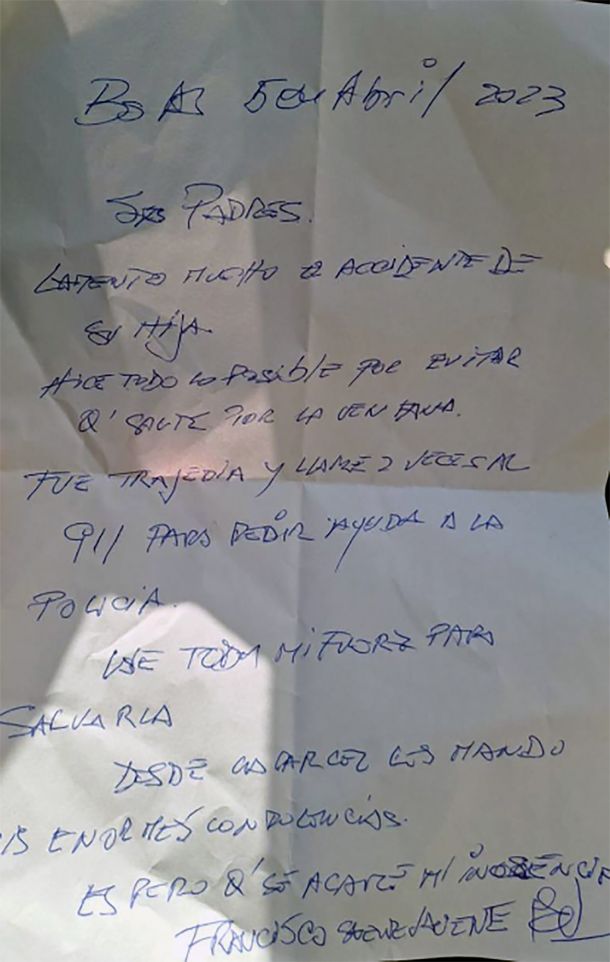 Bs As 5 de Abril 2023
Srs PADRES.
LAMENTO MUCHO EL ACCIDENTE DE
SU HIJA.
HICE TODO LO POSIBLE POR EVITAR
Q' SALTE POR LA VENTANA.
FUE TRAJEDIA Y LLAME 2 VECES AL
911 PARA PEDIR AYUDA A LA
POLICIA.
USE TODA MI FUERZ PARA
SALVARLA
DESDE LA CARCEL LES MANDO
MIS ENORMES CONDOLENCIAS.
ESPERO Q' SE ACLARE MI INOSENCIA
FRANCISCO